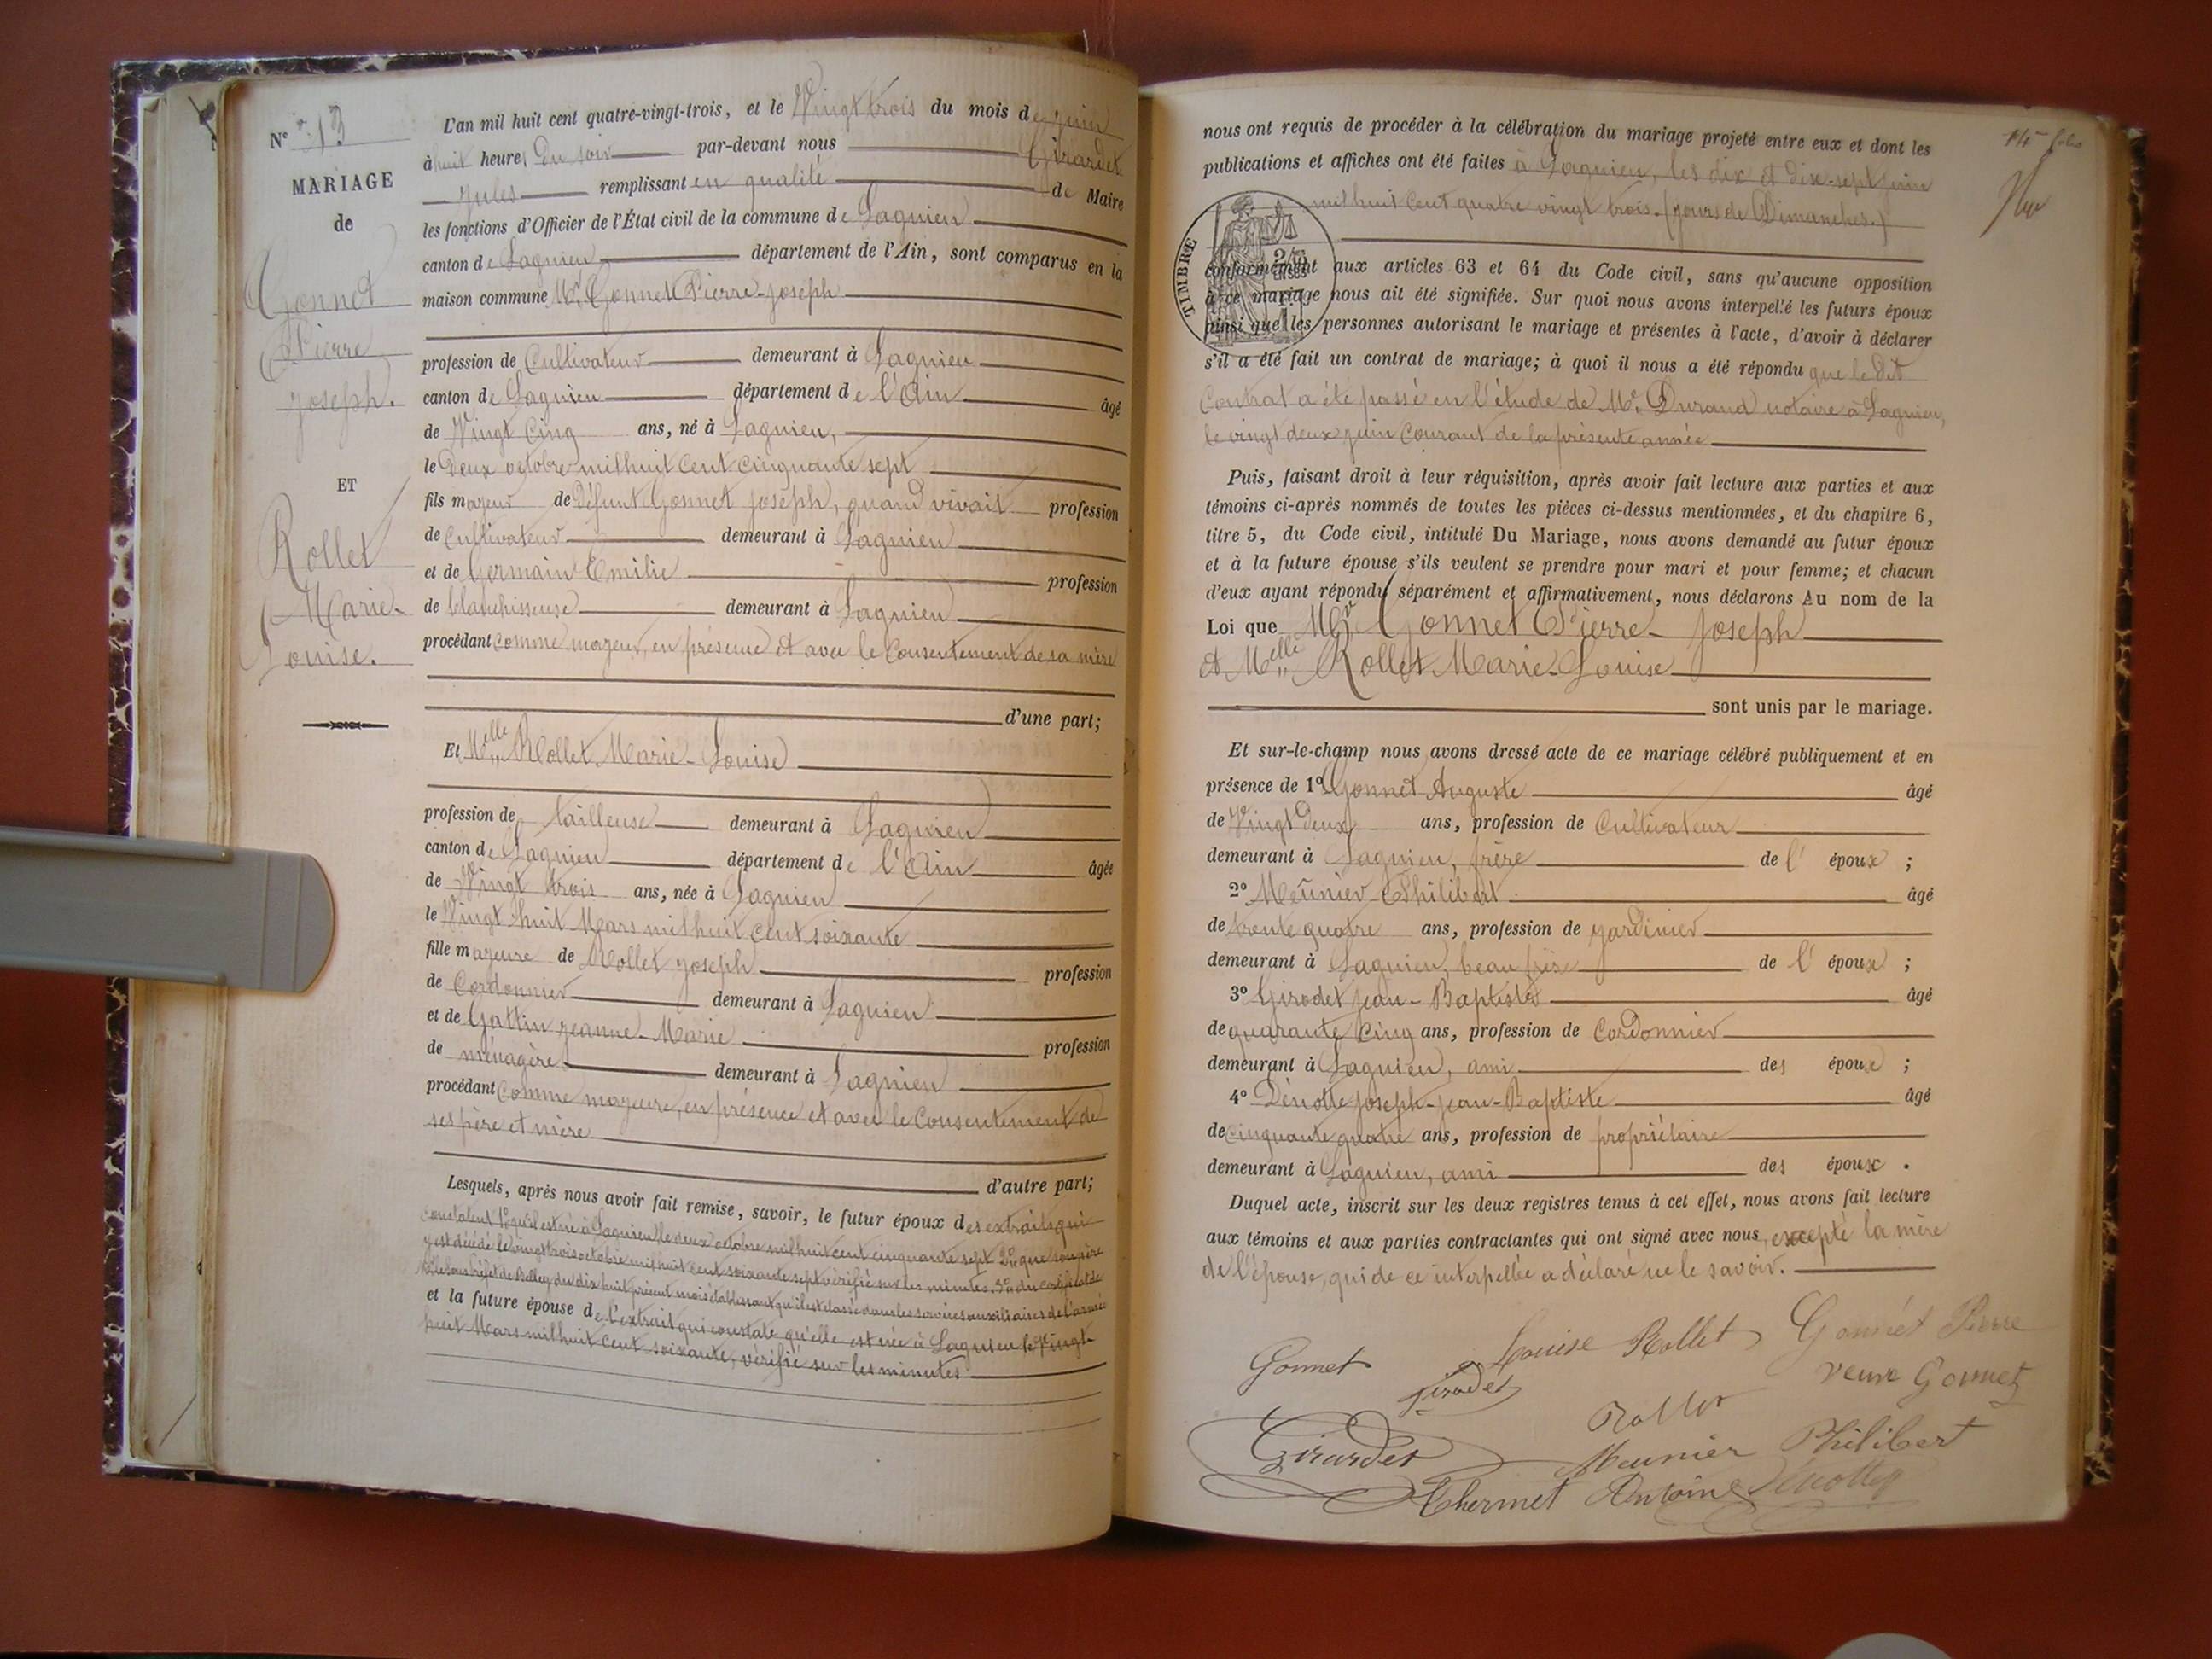 N° 13
MARIAGE
de
Gonnet
Pierre
Joseph.
ET
Rollet
Marie-
Louise.
L'an mil huit cent quatre-vingt-trois, et le Vingt trois du mois de juin
à huit heures du soir par-devant nous Girardet
Jules remplissant en qualité de Maire
les fonctions d'Officier de l'État civil de la commune de Lagnieu
canton de Lagnieu département de l'Ain, sont comparus en la
maison commune Mr. Gonnet Pierre-Joseph
profession de Cultivateur demeurant à Lagnieu
canton de Lagnieu département de l'Ain âgé
de Vingt Cinq ans, né à Lagnieu,
le Deux octobre mil huit cent cinquante sept
fils majeur de Défunt Gonnet Joseph, quand vivait profession
de Cultivateur demeurant à Lagnieu
et de Germain Emilie profession
de blanchisseuse demeurant à Lagnieu
procédant comme majeur, en présence et avec le Consentement de sa mère
d'une part;
Et Melle Rollet Marie-Louise
profession de tailleuse demeurant à Lagnieu
canton de Lagnieu département de l'Ain âgée
de Vingt trois ans, née à Lagnieu
le Vingt huit Mars mil huit cent soixante
fille majeure de Rollet Joseph profession
de Cordonnier demeurant à Lagnieu
et de Gattin Jeanne-Marie profession
de ménagère demeurant à Lagnieu
procédant Comme majeure, en présence et avec le Consentement de
ses père et mère
d'autre part;
Lesquels, après nous avoir fait remise, savoir, le futur époux des extraits qui
constatent 1° qu'il est né à Lagnieu le deux octobre mil huit cent cinquante sept 2° que son père
y est décédé le vingt trois octobre mil huit cent soixante sept vérifié sur les minutes. 3° du certificat de
Mr le Sous Préfet de Belley du dix huit présent mois établissant qu'il est classé dans les services auxiliaires de l'armée
et la future épouse de l'extrait qui constate qu'elle est née à Lagnieu le vingt-
huit Mars mil huit cent soixante, vérifié sur les minutes
14e folio
nous ont requis de procéder à la célébration du mariage projeté entre eux et dont les
publications et affiches ont été faites à Lagnieu, les dix et dix-sept juin
mil huit Cent quatre vingt trois. (jours de Dimanches.)
TIMBRE
conformément aux articles 63 et 64 du Code civil, sans qu'aucune opposition
à ce mariage nous ait été signifiée. Sur quoi nous avons interpellé les futurs époux
ainsi que les personnes autorisant le mariage et présentes à l'acte, d'avoir à déclarer
s'il a été fait un contrat de mariage; à quoi il nous a été répondu que le dit
Contrat a été passé en l'étude de Me. Durand notaire à Lagnieu,
le vingt deux juin Courant de la présente année
Puis, faisant droit à leur réquisition, après avoir fait lecture aux parties et aux
témoins ci-après nommés de toutes les pièces ci-dessus mentionnées, et du chapitre 6,
titre 5, du Code civil, intitulé Du Mariage, nous avons demandé au futur époux
et à la future épouse s'ils veulent se prendre pour mari et pour femme; et chacun
d'eux ayant répondu séparément et affirmativement, nous déclarons Au nom de la
Loi que Mr Gonnet Pierre-Joseph
et Melle Rollet Marie-Louise
sont unis par le mariage.
Et sur-le-champ nous avons dressé acte de ce mariage célébré publiquement et en
présence de 1° Gonnet Auguste âgé
de Vingt Deux ans, profession de Cultivateur
demeurant à Lagnieu, frère de l'époux ;
2° Meunier Philibert âgé
de trente quatre ans, profession de jardinier
demeurant à Lagnieu, beau frère de l'époux ;
3° Girodet Jean-Baptiste âgé
de quarante Cinq ans, profession de Cordonnier
demeurant à Lagnieu, ami des époux ;
4° Dénotte Joseph-Jean-Baptiste âgé
de cinquante quatre ans, profession de propriétaire
demeurant à Lagnieu, ami des époux.
Duquel acte, inscrit sur les deux registres tenus à cet effet, nous avons fait lecture
aux témoins et aux parties contractantes qui ont signé avec nous, excepté la mère
de l'épouse, qui de ce interpellée a déclaré ne le savoir.
Louise Rollet Gonnet Pierre
Gonnet Girodet veuve Gonnet
Rollet
Girardet Meunier Philibert
Thermet Antoine Dénotte